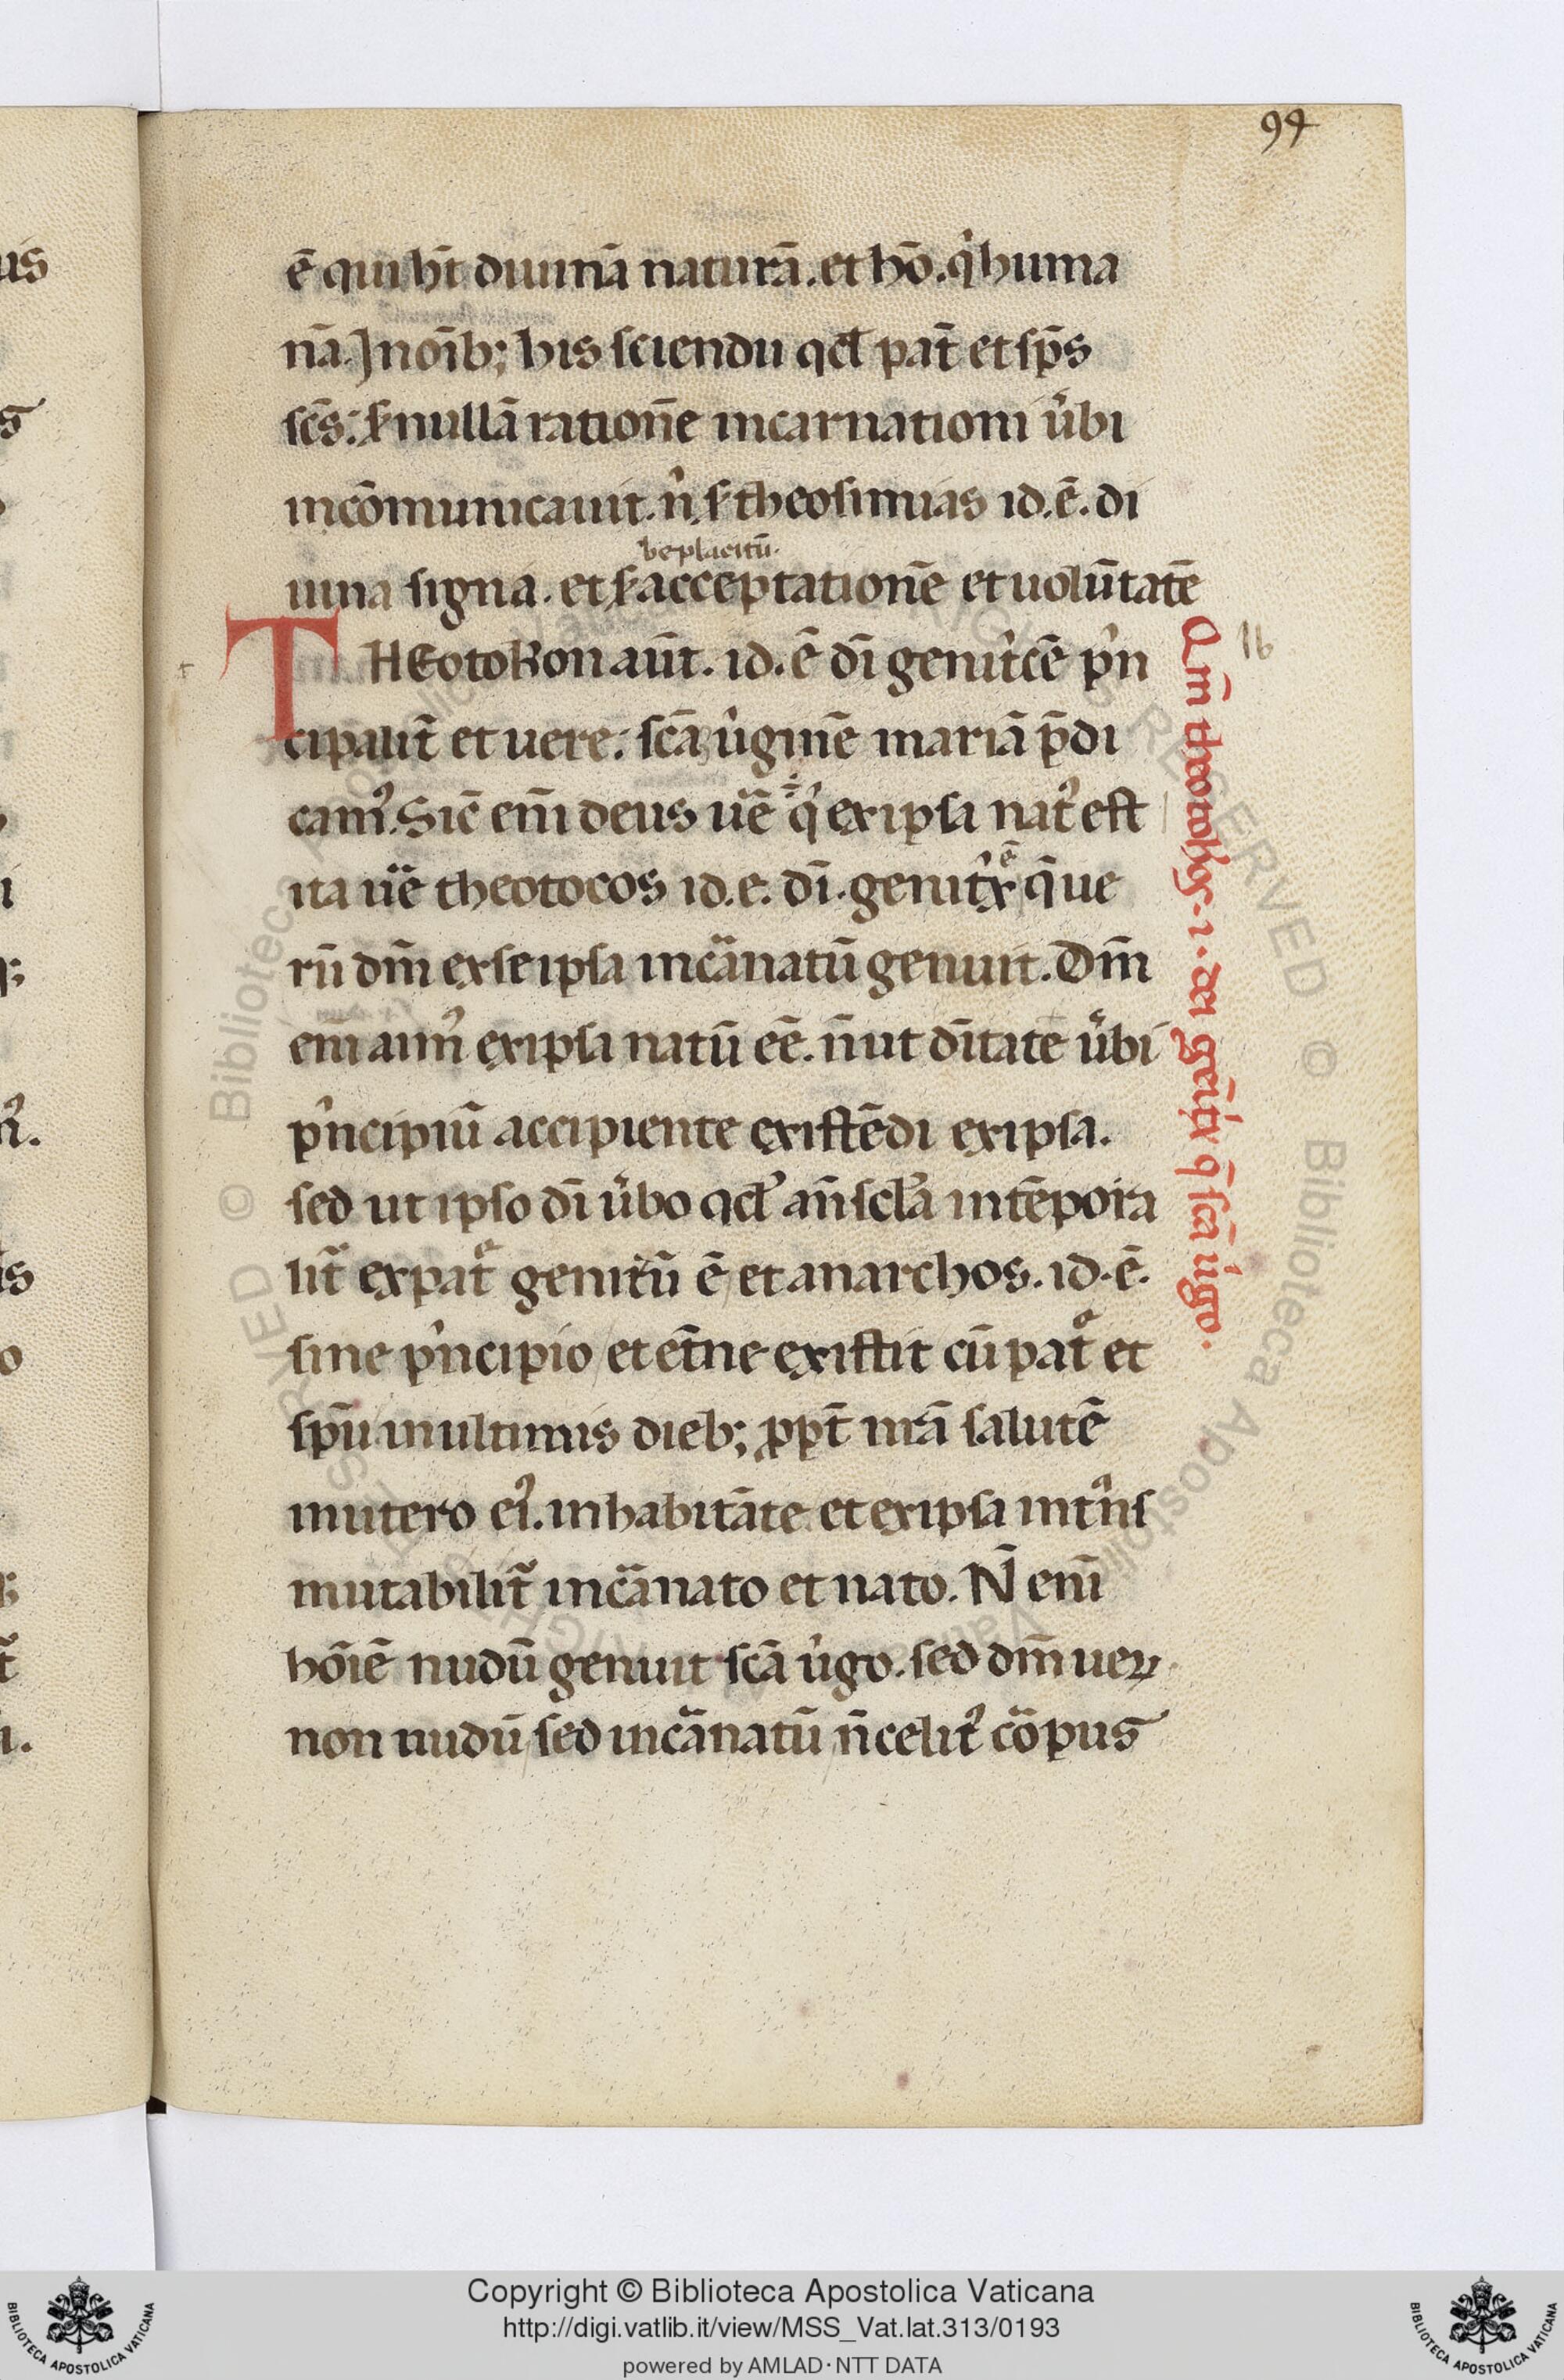 94
ē qui hn̄t diuinā naturā. et hō. qͥ huma
nā. Jn oīb; his sciendū qd̄ pat̄ et sp̄s
sc̄s: ẜ nullā rationē incarnationi ůbi
incōmunicauit. n̊. ẜ theosimias id.ē. di
beplacitū.
uina signa. et ẜ acceptationē et uolūtatē
THEotokon aūt. id. ē dī genitͥcē pͥn
cipalit̄ et uere: scā uͥginē mariā p̄di
cam᾽. Sic̄ eni᷒ deus uē qͥ ex ipsa nat᾽ est
ita uē theotocos id.e. dī. genitͥx ē q̄ ue
rū dm̄ ex se ipsa incaͣnatū genuit. Dm̄
enī aim᾽ ex ipsa natū eē. n̄ ut dītate ůbi
pͥncipiū accipiente existēdi ex ipsa.
sed ut ipso dī ůbo qd᾽ an̄ scl̄a intēpora
lit̄ ex patͤ genitū ē et anarchos. id.ē.
sine pͥncipio et et̄ne existit cū patͤ et
sp̄u in ultimis dieb; ꝓpt̄ nr̄ā salutē
in utero ei᾽. inhabitāte et ex ipsa intͣns
mutabilit̄ incaͣnato et nato. N̄ enī
hōiē nudū genuit scā uͥgo. sed dm̄ ueꝝ
non nudū sed incaͣnatū n̄ celit᾽ coͣpus
Qm̄ theotok᾽. i. dei genitͥx q̄ scā uͥgo.
16
Copyright © Biblioteca Apostolica Vaticana
http://digi.vatlib.it/view/MSS_Vat.lat.313/0193
powered by AMLAD · NTT DATA